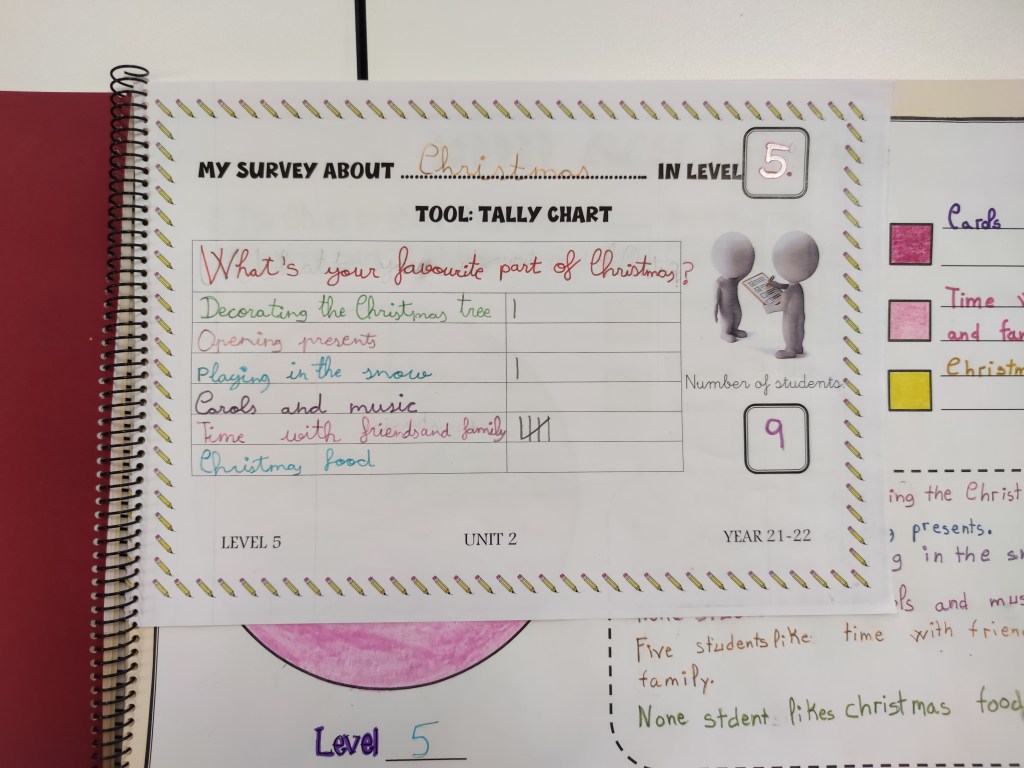 MY SURVEY ABOUT Christmas IN LEVEL 5.
TOOL: TALLY CHART
What's your favourite part of Christmas?
Decorating the Christmas tree
Opening presents
Playing in the snow
Carols and music
Time with friends and family
Christmas food
Number of students:
9
LEVEL 5 UNIT 2 YEAR 21-22
Time
and
ing the Christ
presents.
in the
and
Five students like time with
family.
None stdent likes christmas food
Level 5